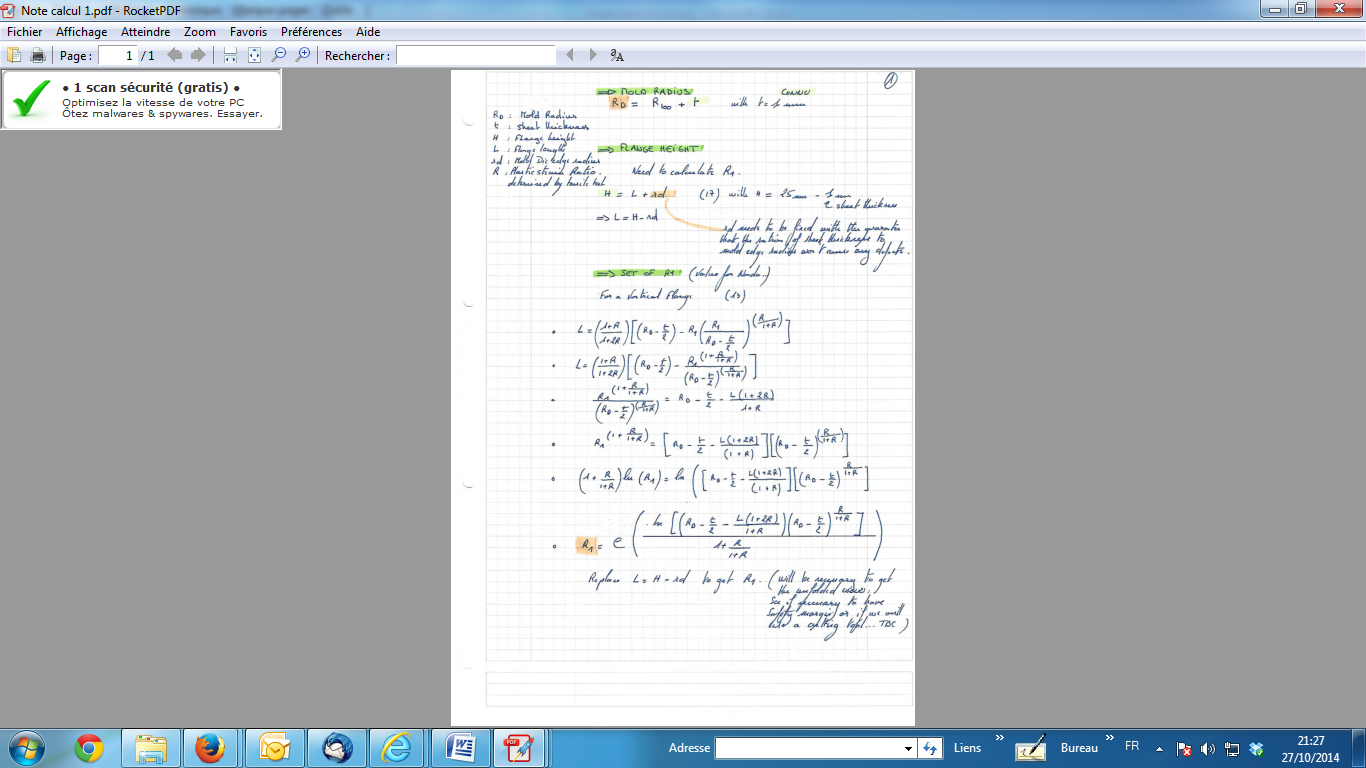 Note calcul 1.pdf - RocketPDF
Fichier Affichage Atteindre Zoom Favoris Préférences Aide
Page : 1 / 1 Rechercher :
• 1 scan sécurité (gratis) •
Optimisez la vitesse de votre PC
Ôtez malwares & spywares. Essayer.
1
⇒ MOLD RADIUS CONNU
RD = R100 + t with t = 1 mm
RD : Mold Radius
t : sheet thickness
H : Flange height
L : Flange length
rd : Mold Die edge radius
R : Plastic strain Ratio.
determined by tensile test
⇒ FLANGE HEIGHT
Need to calculate R1.
H = L + rd (17) with H = 25 mm - 1 mm
sheet thickness
⇒ L = H - rd
rd needs to be fixed with the guarantee
that the ration of sheet thickness to
mold edge radius won't cause any defects.
⇒ SET OF R1 (Value for )
For a Vertical Flange (13)
• L = ((1+R)/(1+2R)) [(RD - t/2) - R1 (R1/(RD - t/2))^(R/(1+R))]
• L = ((1+R)/(1+2R)) [(RD - t/2) - R1^(1+R/(1+R))/(RD - t/2)^(R/(1+R))]
• R1^(1+R/(1+R))/(RD - t/2)^(R/(1+R)) = RD - t/2 - L(1+2R)/(1+R)
• R1^(1+R/(1+R)) = [RD - t/2 - L(1+2R)/(1+R)][(RD - t/2)^(R/(1+R))]
• (1+R/(1+R)) ln(R1) = ln([RD - t/2 - L(1+2R)/(1+R)][(RD - t/2)^(R/(1+R))]
• R1 = e^(ln[(RD - t/2 - L(1+2R)/(1+R))(RD - t/2)^(R/(1+R))]/(1+R/(1+R)))
Replace L = H - rd to get R1. (will be necessary to get
the unfolded
See if necessary to have
safety margin or if we will
use a cutting tool... TBC)
Adresse Liens » Bureau » FR
21:27
27/10/2014